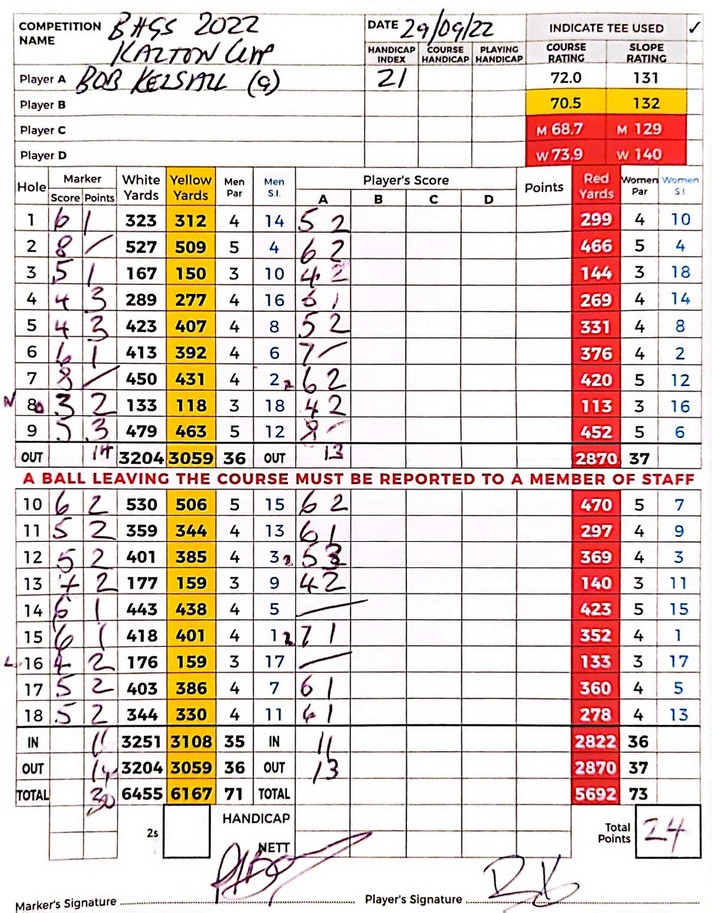 COMPETITION NAME BHGS 2022 DATE 29/09/22 INDICATE TEE USED ✓
KALTON CUP HANDICAP INDEX COURSE HANDICAP PLAYING HANDICAP COURSE RATING SLOPE RATING
Player A BOB KELSALL (G) 21 72.0 131
Player B 70.5 132
Player C M 68.7 M 129
Player D W 73.9 W 140
Hole Marker Score Points White Yards Yellow Yards Men Par Men S.I. Player's Score A B C D Points Red Yards Women Par Women S.I.
1 6 1 323 312 4 14 5 2 299 4 10
2 8 / 527 509 5 4 6 2 466 5 4
3 5 1 167 150 3 10 4 2 144 3 18
4 4 3 289 277 4 16 6 1 269 4 14
5 4 3 423 407 4 8 5 2 331 4 8
6 6 1 413 392 4 6 7 / 376 4 2
7 8 / 450 431 4 2 2 6 2 420 5 12
N 8 3 2 133 118 3 18 4 2 113 3 16
9 5 3 479 463 5 12 8 / 452 5 6
OUT 14 3204 3059 36 OUT 13 2870 37
A BALL LEAVING THE COURSE MUST BE REPORTED TO A MEMBER OF STAFF
10 6 2 530 506 5 15 6 2 470 5 7
11 5 2 359 344 4 13 6 1 297 4 9
12 5 2 401 385 4 3 2 5 3 369 4 3
13 4 2 177 159 3 9 4 2 140 3 11
14 6 1 443 438 4 5 — 423 5 15
15 6 1 418 401 4 1 2 7 1 352 4 1
L 16 4 2 176 159 3 17 — 133 3 17
17 5 2 403 386 4 7 6 1 360 4 5
18 5 2 344 330 4 11 6 1 278 4 13
IN 3251 3108 35 IN 11 2822 36
OUT 14 3204 3059 36 OUT 13 2870 37
TOTAL 30 6455 6167 71 TOTAL 5692 73
2s HANDICAP Total Points 24
NETT
Marker's Signature Player's Signature